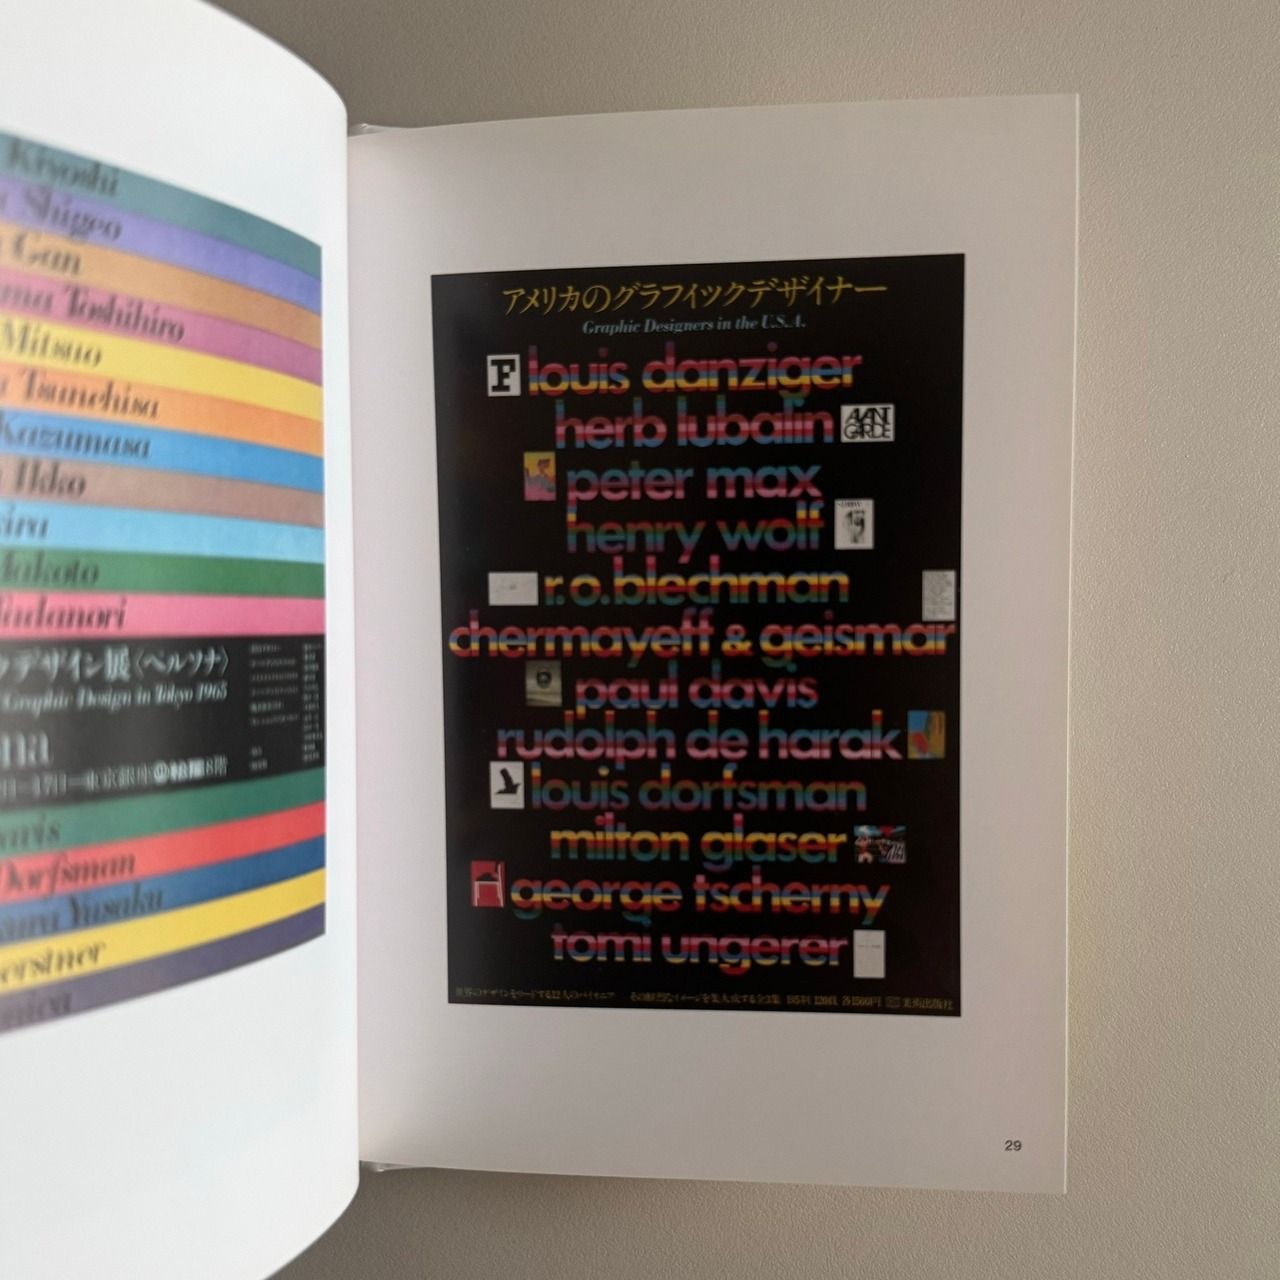 Kiyoshi
Shigeo
Gan
ma Toshihiro
Mitsuo
Tsunehisa
Kazumasa
Ikko
kira
Makoto
Tadanori
クデザイン展〈ペルソナ〉
Graphic Design in Tokyo 1965
na
日—17日—東京銀座@松屋8階
Davis
Dorfsman
kura Yusaku
erstner
アメリカのグラフィックデザイナー
Graphic Designers in the U.S.A.
F louis danziger
herb lubalin AVANT GARDE
peter max
henry wolf
r.o.blechman
chermayeff & geismar
paul davis
rudolph de harak
louis dorfsman
milton glaser
george tscherny
tomi ungerer
世界のデザインをリードする12人のパイオニア その強烈なイメージを集大成する全3集 B5判 120頁 各1500円 美術出版社
29